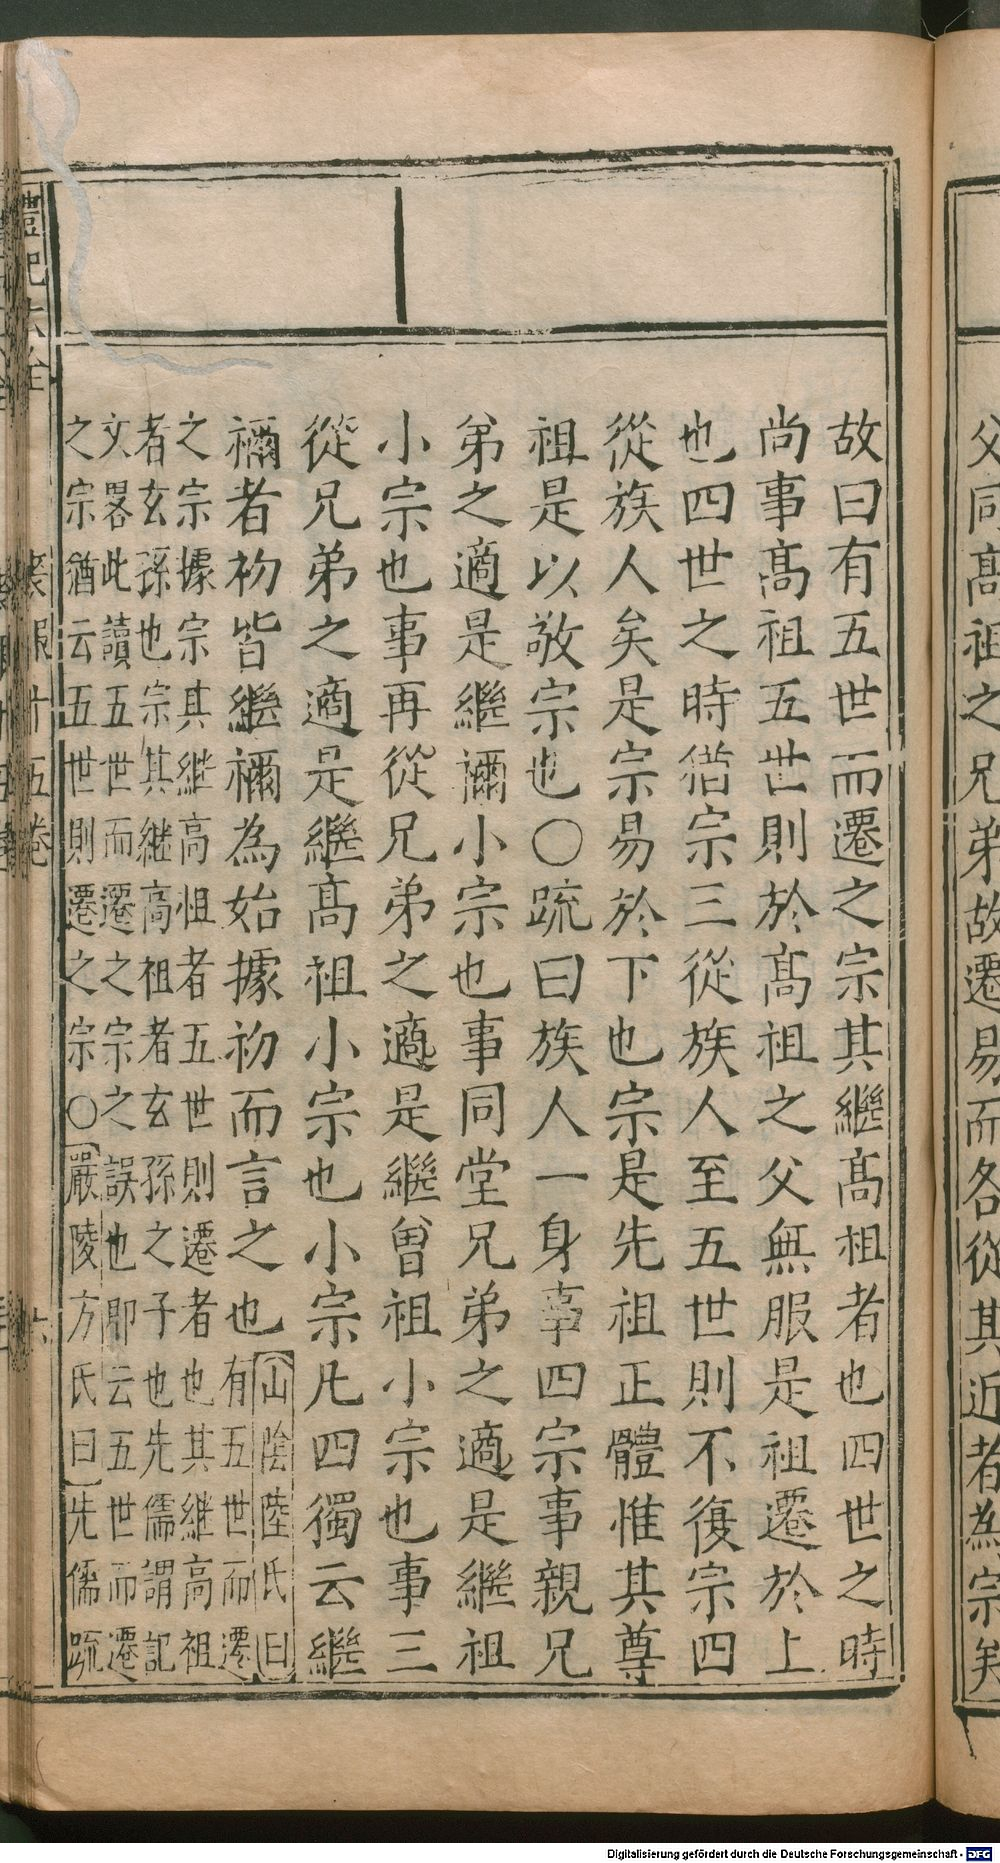 父同髙祖之兄弟故遷易而各從其近者為宗矣
故曰有五世而遷之宗其繼髙祖者也四世之時
尚事髙祖五世則於髙祖之父無服是祖遷於上
也四世之時猶宗三從族人至五世則不復宗四
從族人矣是宗易於下也宗是先祖正體惟其尊
祖是以敬宗也〇疏曰族人一身事四宗事親兄
弟之適是繼禰小宗也事同堂兄弟之適是繼祖
小宗也事再從兄弟之適是繼曾祖小宗也事三
從兄弟之適是繼髙祖小宗也小宗凡四獨云繼
禰者初皆繼禰為始據初而言之也
山陰陸氏曰
有五世而遷
之宗據宗其継高祖者五世則遷者也其継高祖
者玄孫也宗其継高祖者玄孫之子也先儒謂記
文畧此讀五世而遷之宗之誤也即云五世而遷
之宗猶云五世則遷之宗〇嚴陵方氏曰先儒疏
禮記大全
喪服 十五卷
六
Digitalisierung gefördert durch die Deutsche Forschungsgemeinschaft - DFG